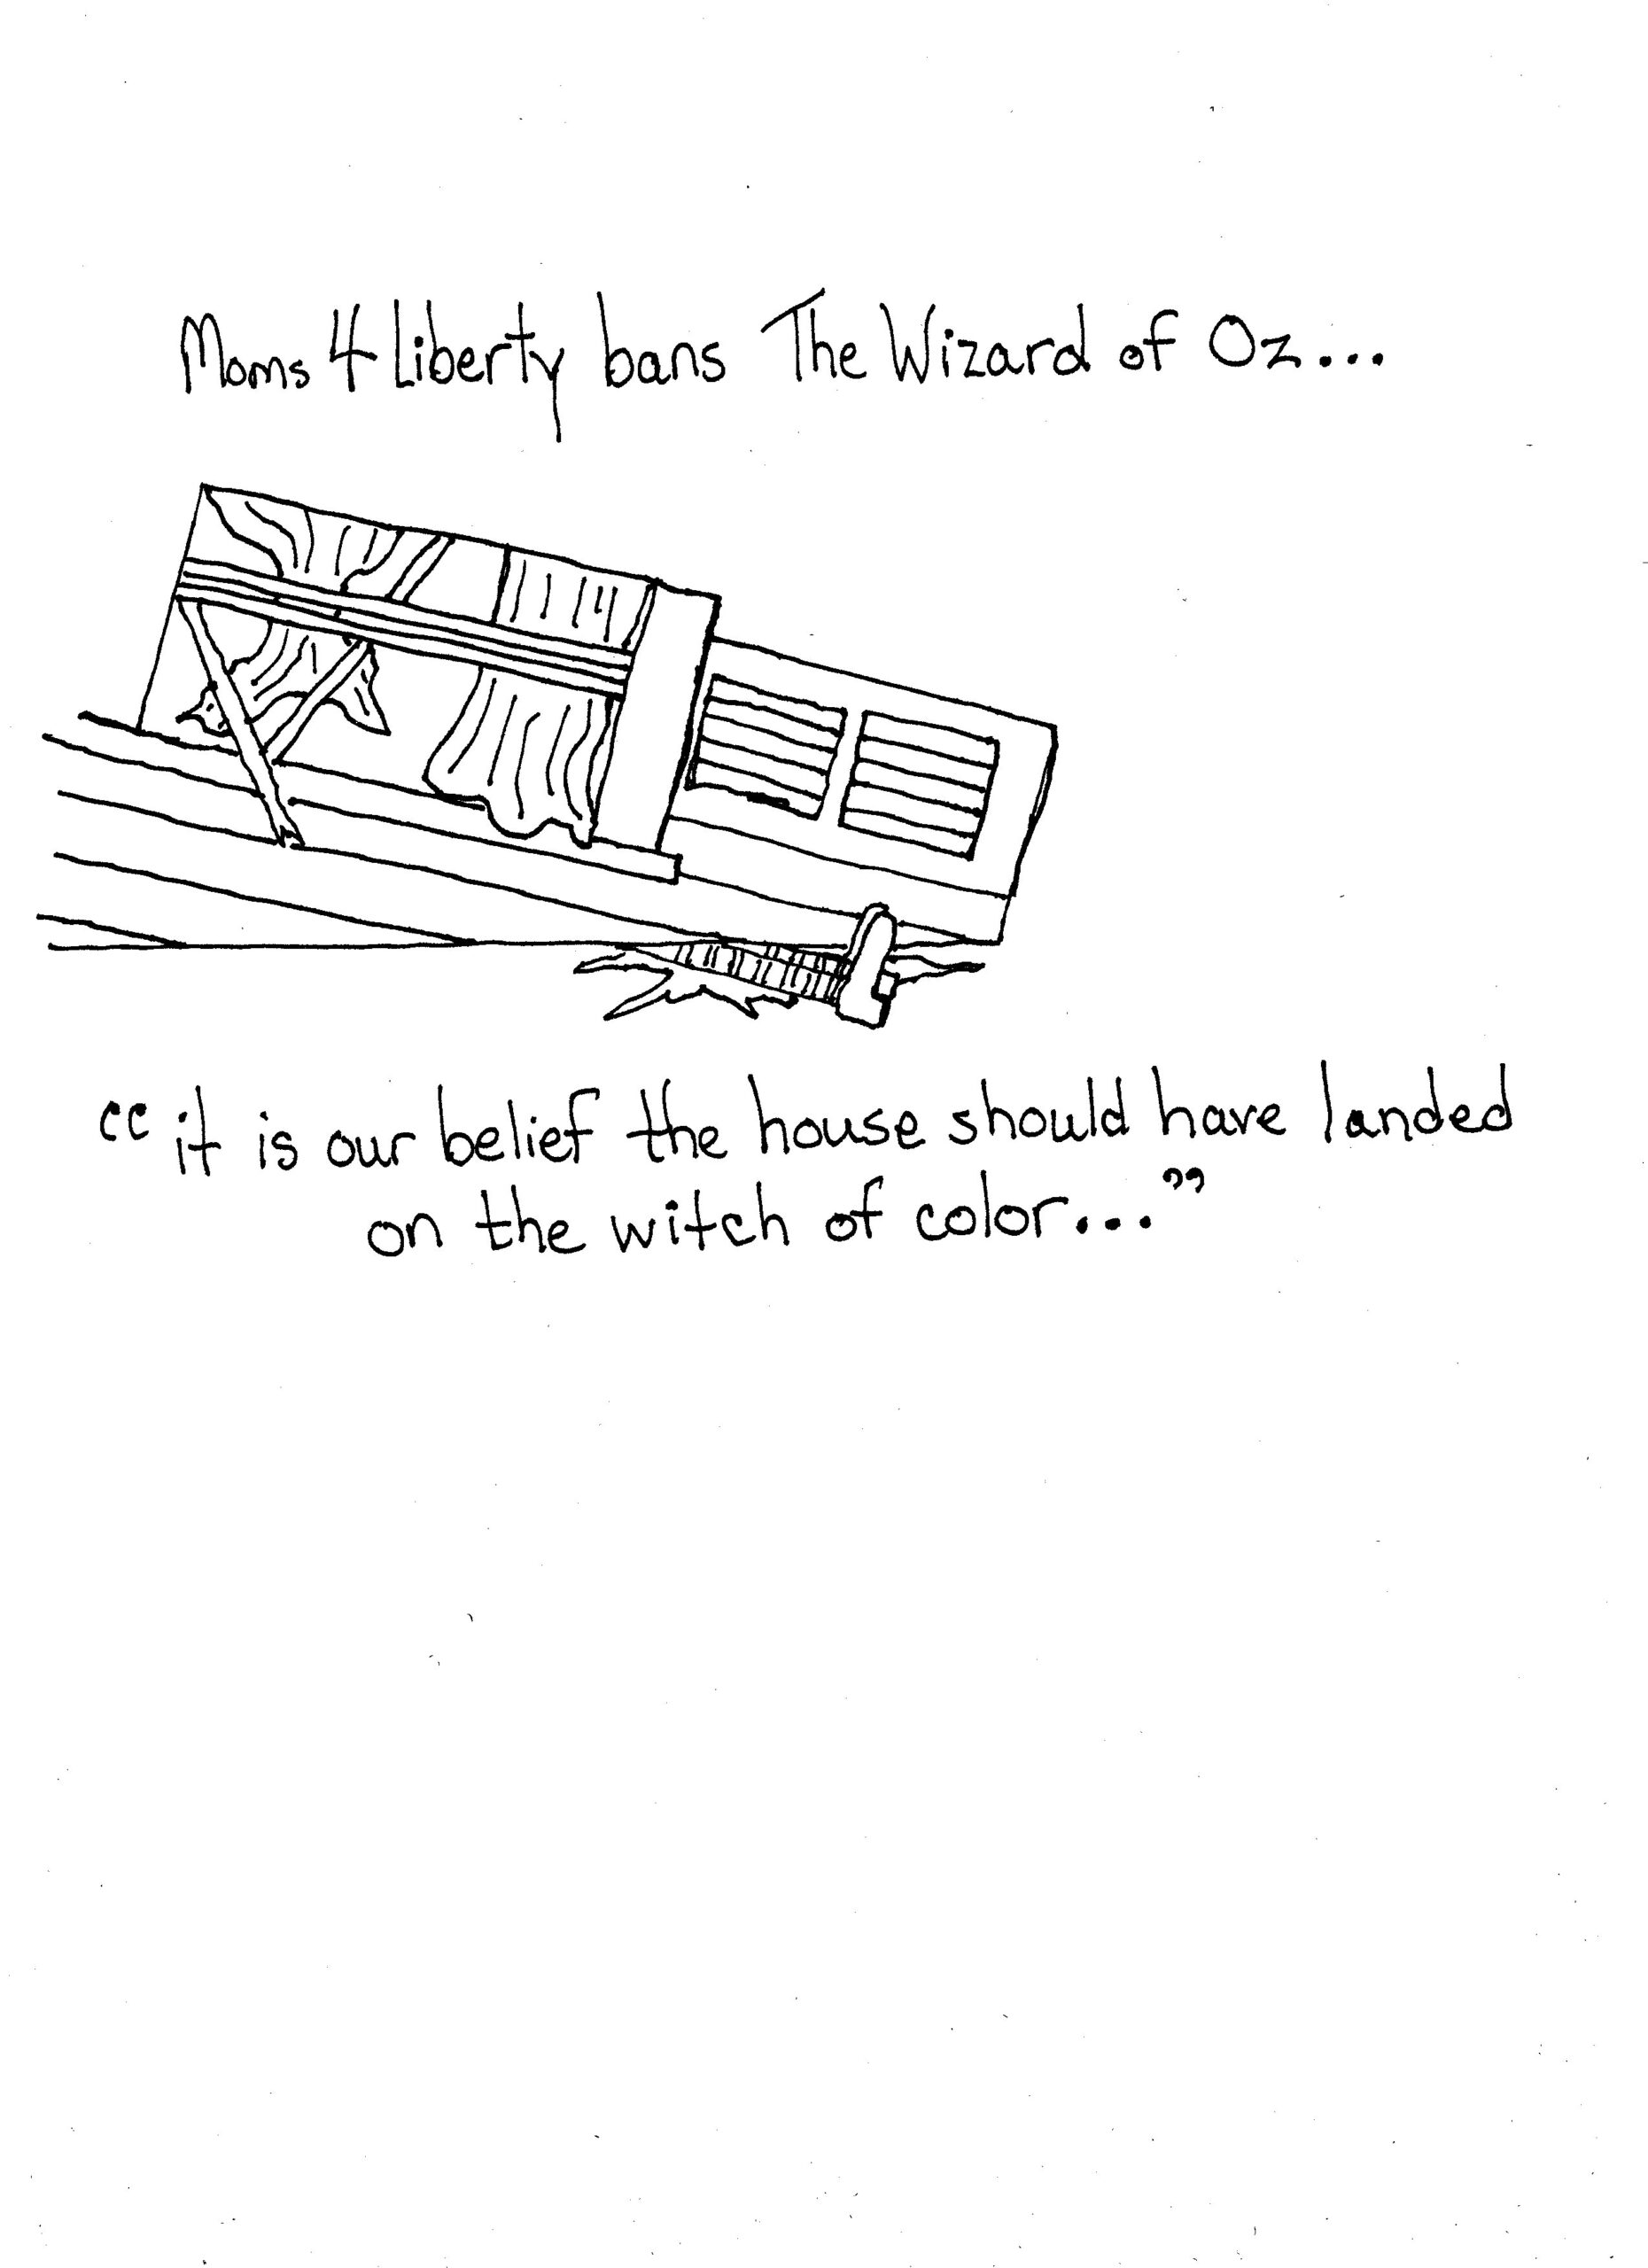 Moms 4 Liberty bans The Wizard of Oz...
“it is our belief the house should have landed
on the witch of color...”